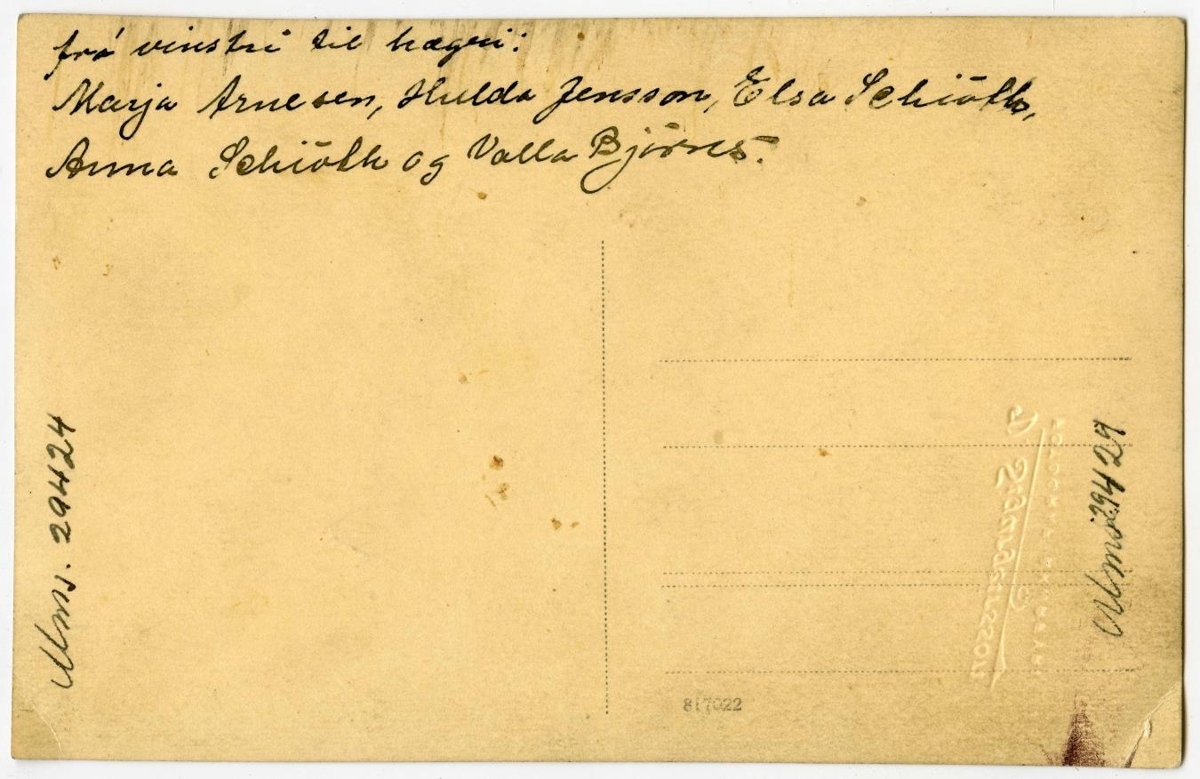 frá vinstri til hægri:
Marja Arnesen, Hulda Jensson, Elsa Schiöth,
Anna Schiöth og Valla Björns.
Mms. 29424
Mms. 29424
817022